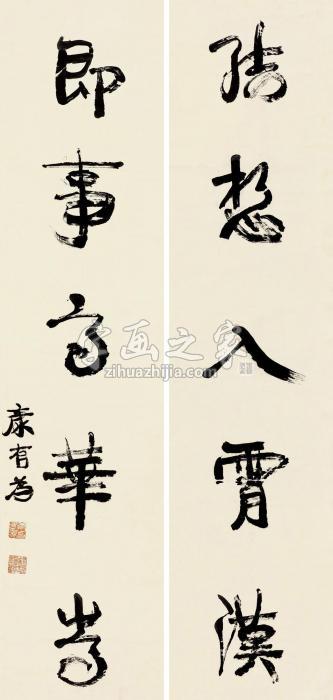 结想入霄漢
即事高華嵩
康有為
字画之家
zihuazhijia.com